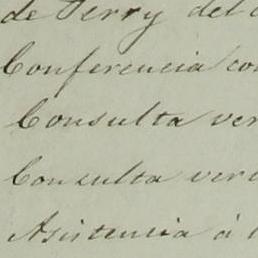 de Perry del
Conferencia con
Consulta ver
Consulta ver
Asistencia á